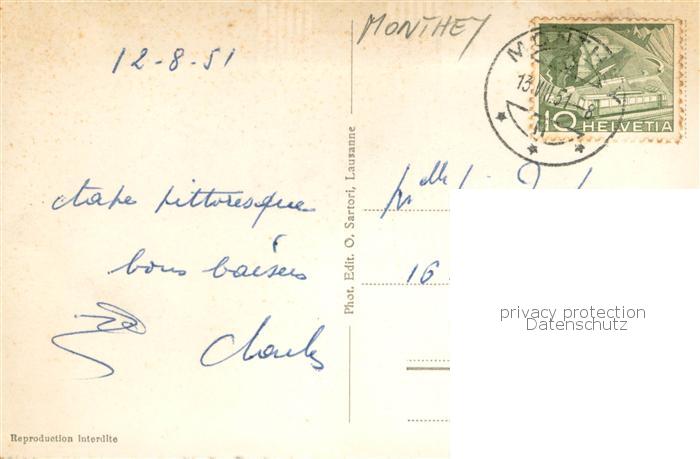 MONTHEY
12-8-51
MONTHEY
13.VIII.51-08
10 HELVETIA
étape pittoresque
bons baisers
Charles
Phot. Edit. O. Sartori, Lausanne
Mlle
16
privacy protection
Datenschutz
Reproduction interdite